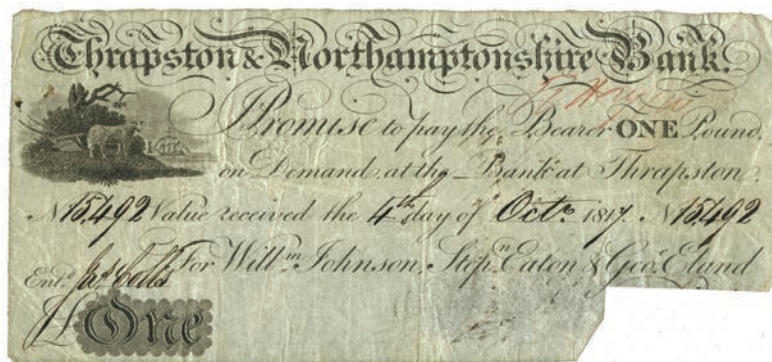 Thrapston & Northamptonshire Bank.
Promise to pay the Bearer ONE Pound
on Demand, at the Bank at Thrapston.
N 15,492 Value received the 4th day of Octr. 1817. N 15,492
For Willm. Johnson, Stepn. Eaton & Geo. Eland
Entd.
£ One